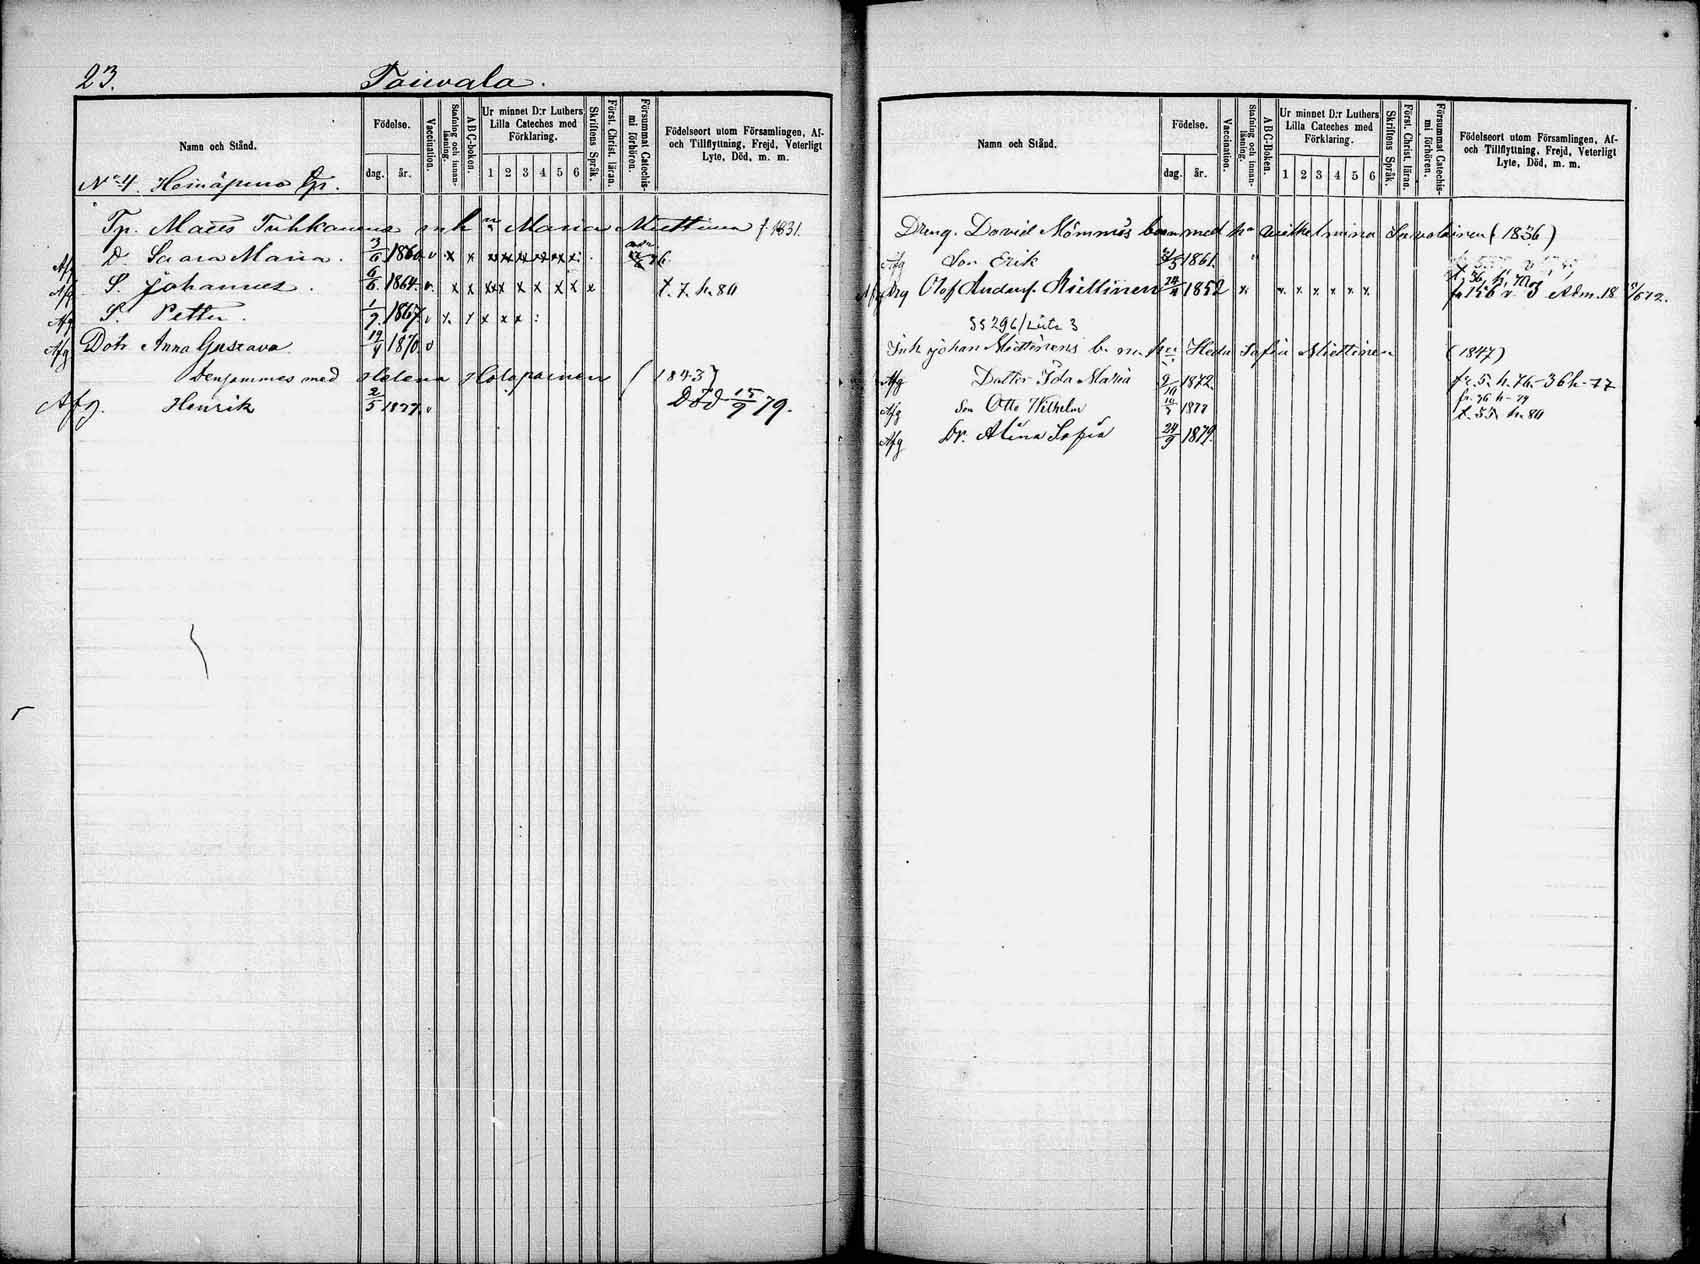 23. Taiwala.
Namn och Stånd.
Födelse.
dag. år.
Vaccination.
Stafning och innanläsning.
ABC-boken.
Ur minnet D:r Luthers Lilla Cateches med Förklaring.
1 2 3 4 5 6
Skriftens Språk.
Först. Christ. läran.
Försummat Catechismi förhören.
Födelseort utom Församlingen, Af- och Tillflyttning, Frejd, Veterligt Lyte, Död, m. m.
No 4. Heinäpuro
Tp. Matts Tuhkanens Maria Miettinen f. 1831.
Afg D. Saara Maria. 3/6 1860 v x x x x x x x x
Afg S. Johannes. 6/6 1864 v x x x x x x x x x t. 7. h. 80
Afg S. Petter. 1/7 1867 v x x x x x
Afg Dotr Anna Gustava 1870 v
Denjemmes med Helena Holopainen (1843)
Afg. Henrik 2/5 1877 v Död 15/9 79.
Namn och Stånd.
Födelse.
dag. år.
Vaccination.
Stafning och innanläsning.
ABC-boken.
Ur minnet D:r Luthers Lilla Cateches med Förklaring.
1 2 3 4 5 6
Skriftens Språk.
Först. Christ. läran.
Försummat Catechismi förhören.
Födelseort utom Församlingen, Af- och Tillflyttning, Frejd, Veterligt Lyte, Död, m. m.
Dreng. David Mömmös barn med Wilhelmina Savolainen (1836)
Afg Son Erik 1861
Drg Olof Andersf. Miettinen 1852 x x x x x x x Adm. 18
SS 296/
Inh Johan Miettinens b. m. Heda Sofia Miettinen (1847)
Afg Dotter Ida Maria 9/10 1872 fr. 5. h. 76. - 36 h - 77
Afg Son Otto Wilhelm 1877 t. 55 h. 80
Afg Dr. Alina Sofia 24/9 1879